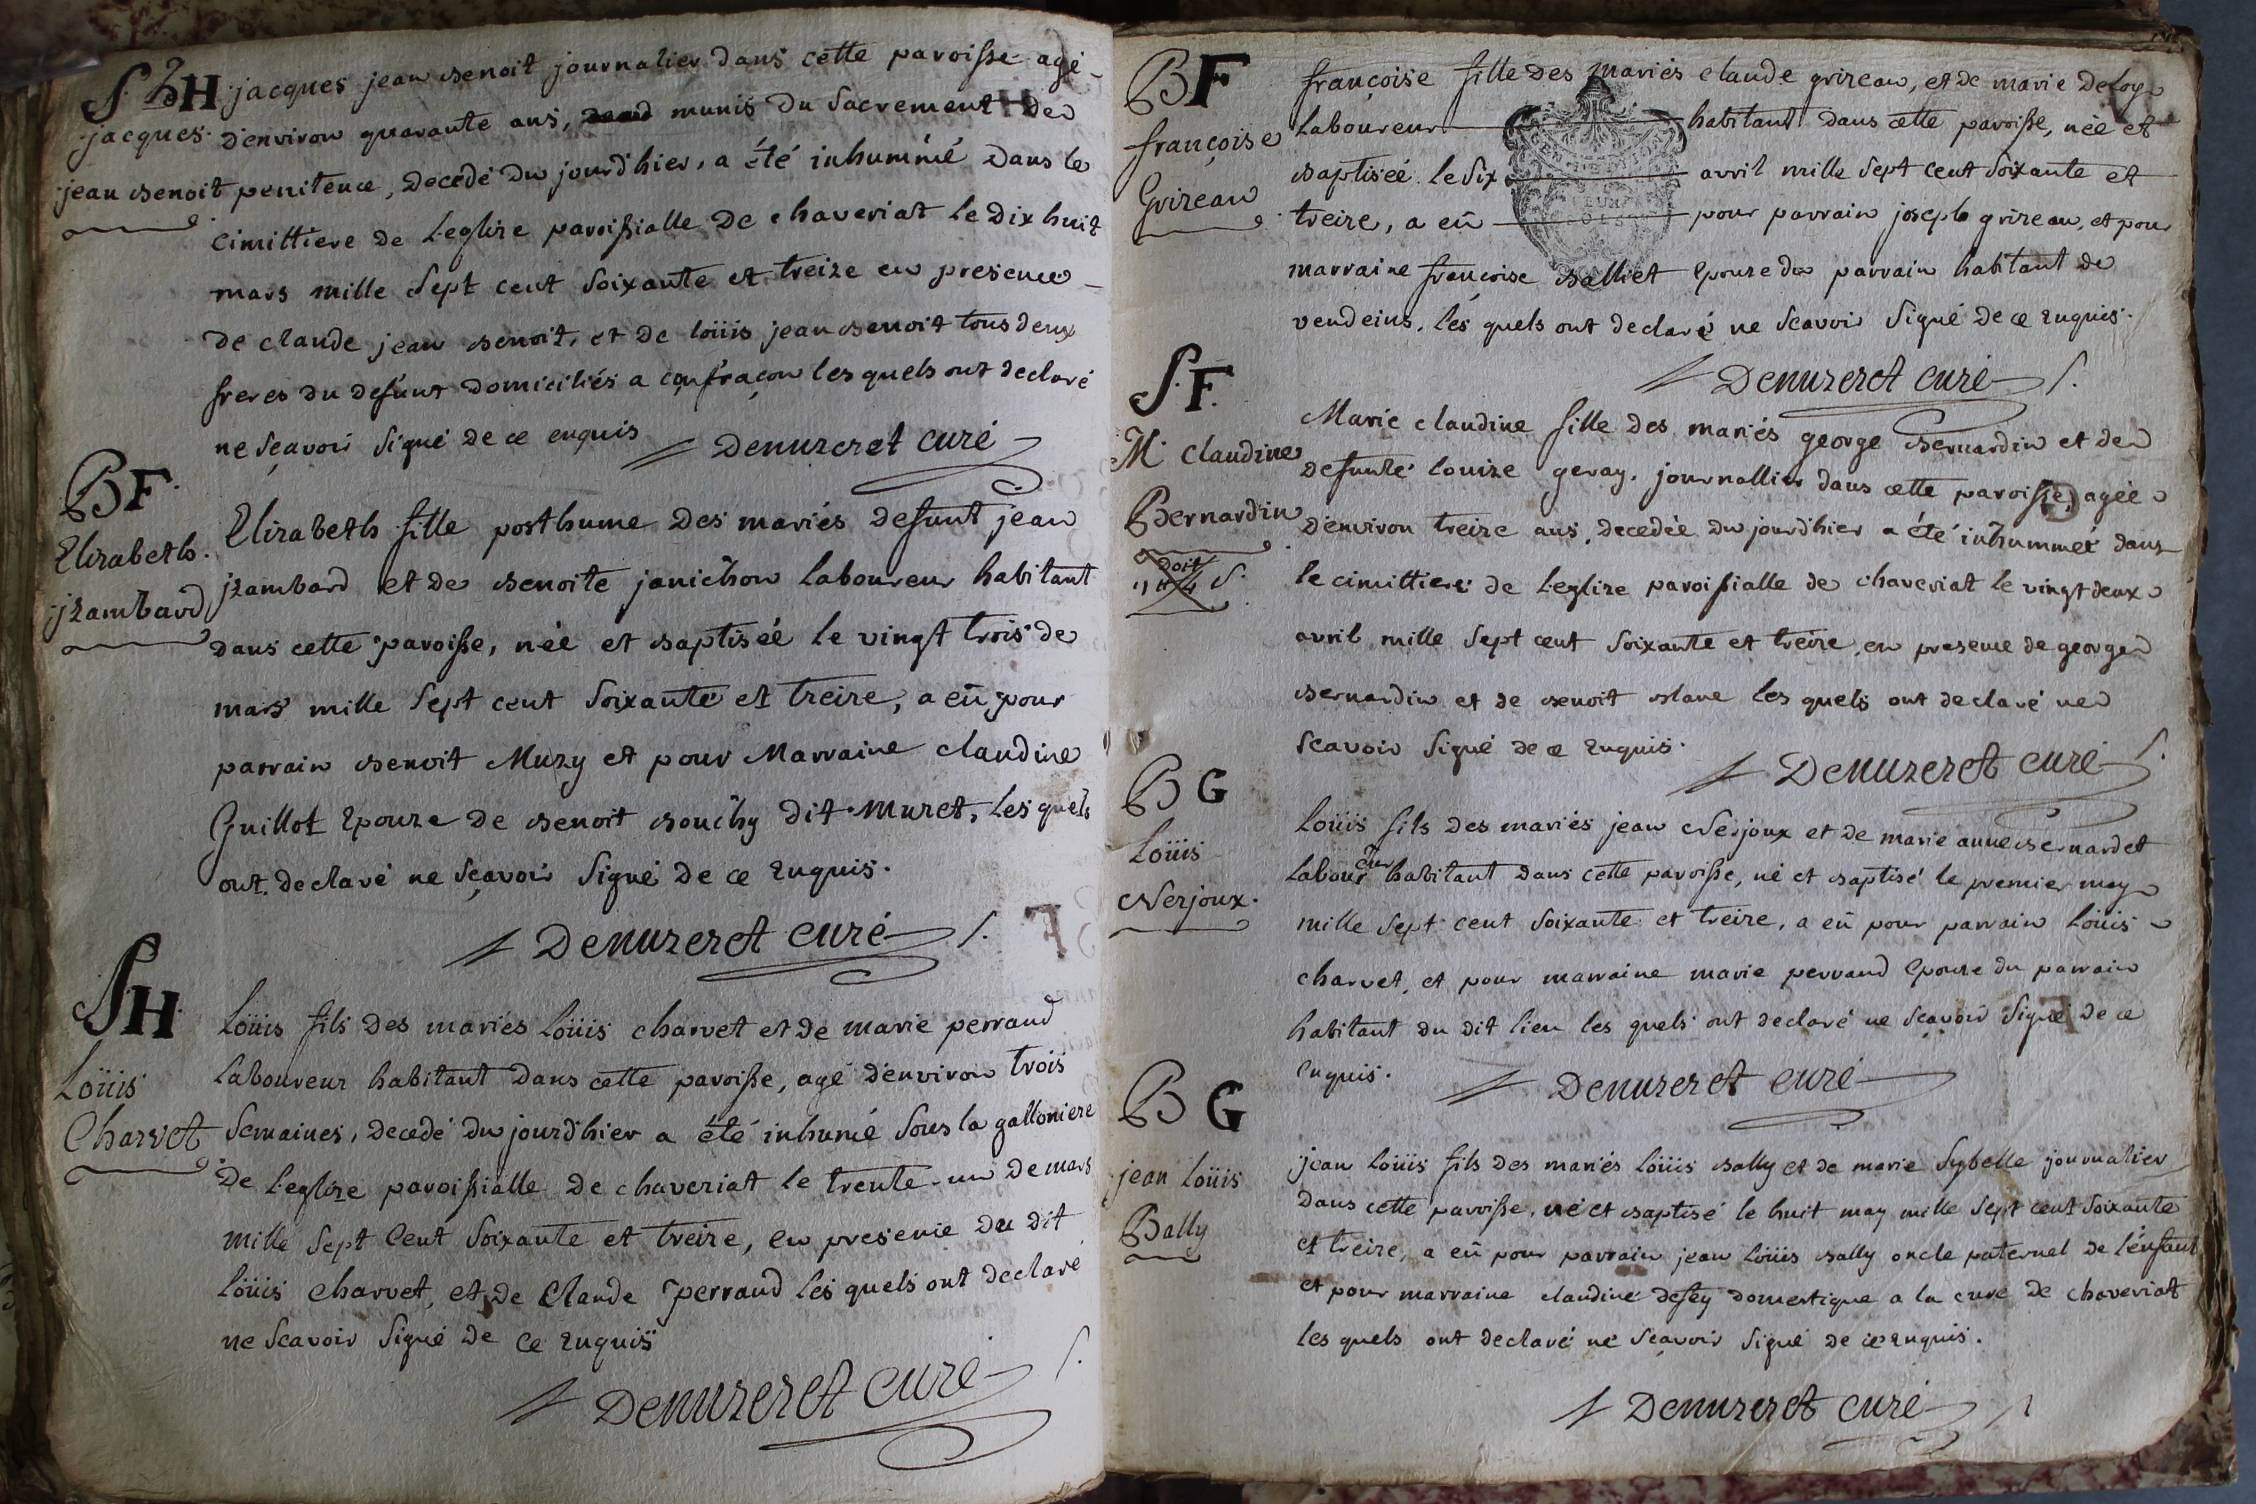 S. H jacques jean Benoit journalier dans cette paroisse agé
jacques d'environ quarante ans, munis du Sacrement de
jean Benoit penitence, decedé du jourd'hier, a été inhummé dans le
cimittiere de l'eglize paroissialle de chaveriat le dix huit
mars mille sept cent soixante et treize en presence
de claude jean Benoit, et de loüis jean Benoit tous deux
freres du defunt domiciliés a confraçon les quels ont declaré
ne sçavoir signé de ce enquis Denuzeret curé
BF
Elizabeth
jzambard
Elizabeth fille posthume des mariés defunt jean
jzambard et de Benoite janichon laboureur habitant
dans cette paroisse, née et baptiseé le vingt trois de
mars mille sept cent soixante et treize, a eû pour
parrain Benoit Muzy et pour Marraine claudine
Guillot Epouze de Benoit Bouchy dit Muret, les quels
ont declaré ne sçavoir signé de ce enquis.
Denuzeret curé
SH
Loüis
Charvet
Loüis fils des mariés Loüis charvet et de marie perraud
laboureur habitant dans cette paroisse, agé d'environ trois
semaines, decedé du jourd'hier a été inhumé sous la galloniere
de l'eglize paroissialle de chaveriat le trente-un de mars
mille sept cent soixante et treize, en presence du dit
loüis charvet, et de Claude perraud les quels ont declaré
ne scavoir signé de ce enquis
Denuzeret curé
BF
françoise
Grizeau
françoise fille des mariés claude grizeau, et de marie Deloye
laboureur habitant dans cette paroisse, née et
baptiseé le six avril mille sept cent soixante et
treize, a eû pour parrain joseph grizeau, et pour
marraine françoise Balliet Epouze du parrain habitant de
vendeins, les quels ont declaré ne scavoir signé de ce enquis.
Denuzeret curé
S.F.
M. claudine
Bernardin
doit
Marie claudine fille des mariés george Bernardin et de
defunte louize geray, journallier dans cette paroisse, ageé
d'environ treize ans, decedée du jourd'hier a été inhummeé dans
le cimittiere de l'eglize paroissialle de chaveriat le vingt deux
avril mille sept cent soixante et treize, en presence de george
Bernardin et de Benoit Blanc les quels ont declaré ne
scavoir signé de ce enquis.
Denuzeret curé
BG
Loüis
Nerjoux.
Loüis fils des mariés jean Nerjoux et de marie anne Bernardet
laboureur habitant dans cette paroisse, né et baptisé le premier may
mille sept cent soixante et treize, a eû pour parrain Loüis
charvet, et pour marraine marie perraud Epouze du parrain
habitant du dit lieu les quels ont declaré ne scavoir signé de ce
enquis. Denuzeret curé
BG
jean Loüis
Bally
jean Loüis fils des mariés Loüis Bally et de marie Sybelle journalier
dans cette paroisse, né et baptisé le huit may mille sept cent soixante
et treize, a eû pour parrain jean Loüis Bally oncle paternel de l'enfant
et pour marraine claudine defey domestique a la cure de chaveriat
les quels ont declaré ne sçavoir signé de ce enquis.
Denuzeret curé